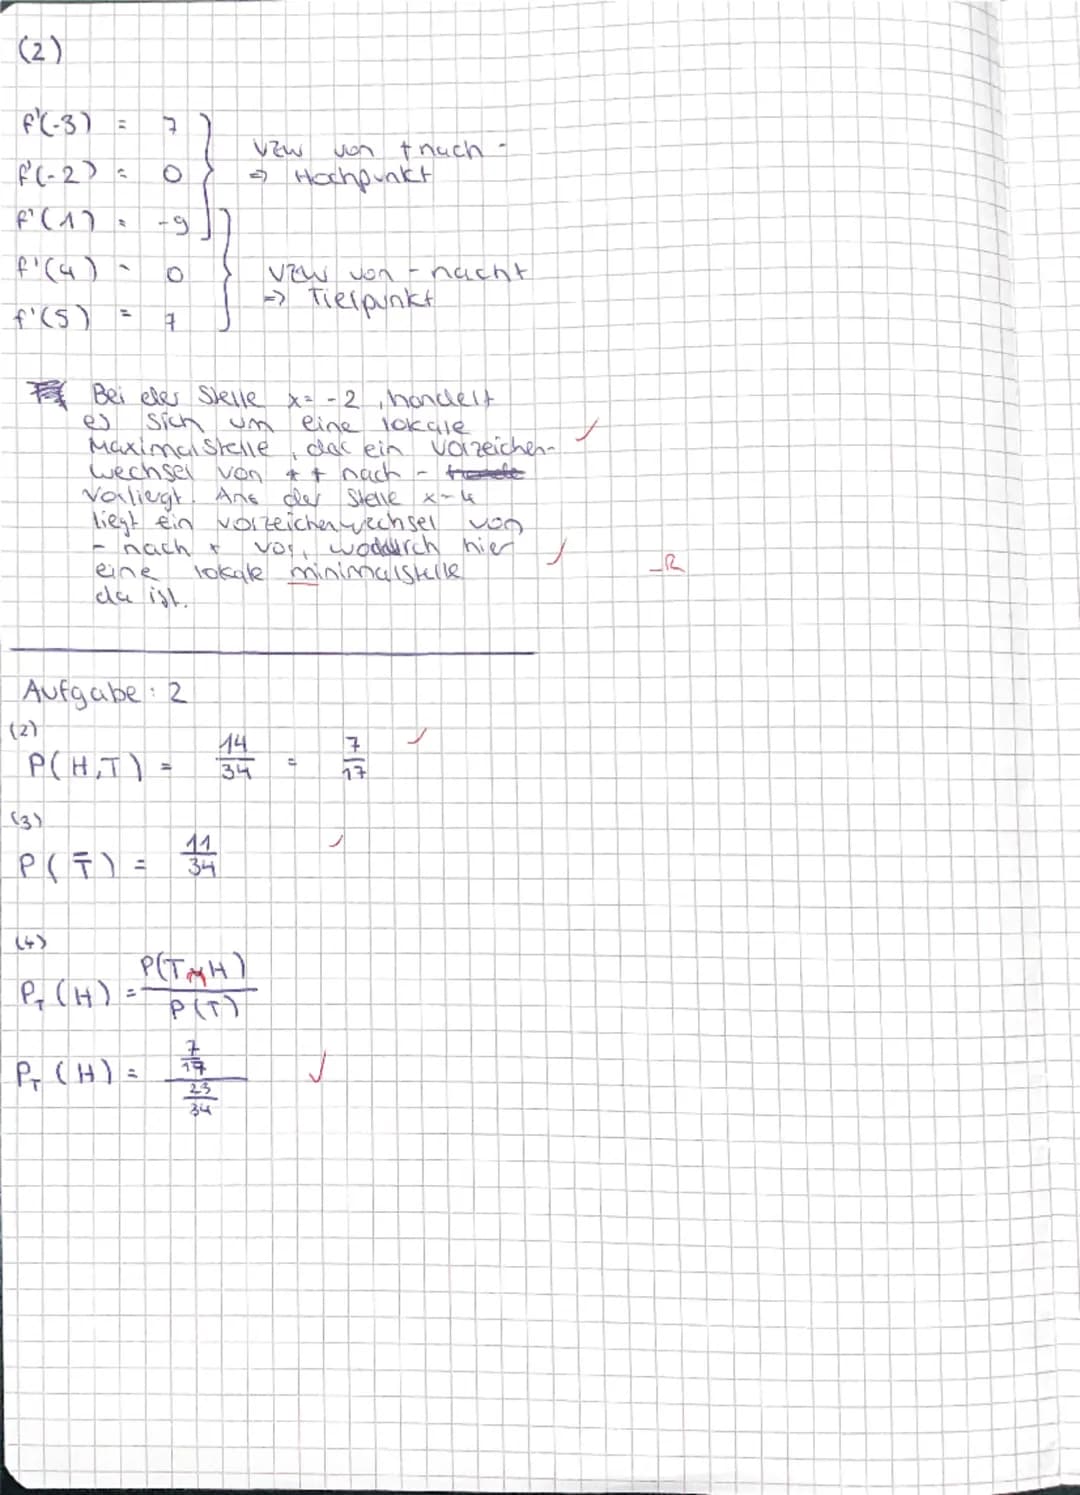 (2)
f'(-3) = 7
VZW von + nach -
f'(-2) = 0
=> Hochpunkt
f'(1) = -9
f'(4) = 0
VZW von - nach +
=> Tiefpunkt
f'(5) = 7
Bei der Stelle x = -2, handelt
es sich um eine lokale
Maximalstelle, da ein Vorzeichen-
wechsel von + + nach -
vorliegt. Ans der Stelle x=4
liegt ein vorzeichenwechsel von
- nach + vor, woddurch hier
eine lokale minimalstelle
-R
da ist.
Aufgabe: 2
(2)
P(H,T) = 14/34 = 7/17
(3)
P(T̄) = 11/34
(4)
P_T(H) = P(T∩H)/P(T)
P_T(H) = (7/17)/(23/34)